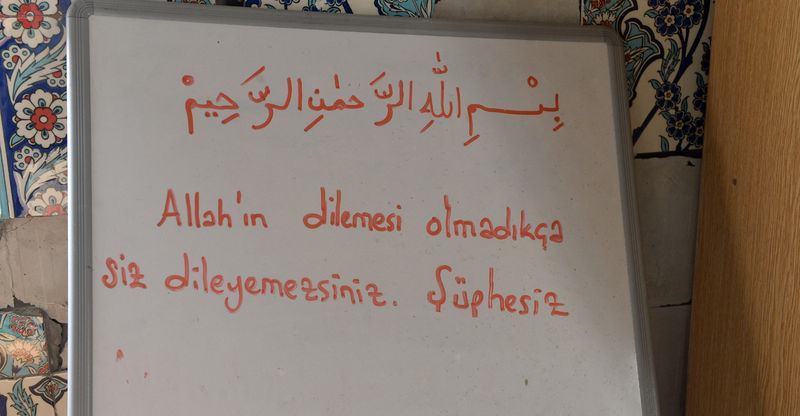 بِسْمِ اللّٰهِ الرَّحْمٰنِ الرَّحِيمْ
Allah'ın dilemesi olmadıkça
siz dileyemezsiniz. Şüphesiz